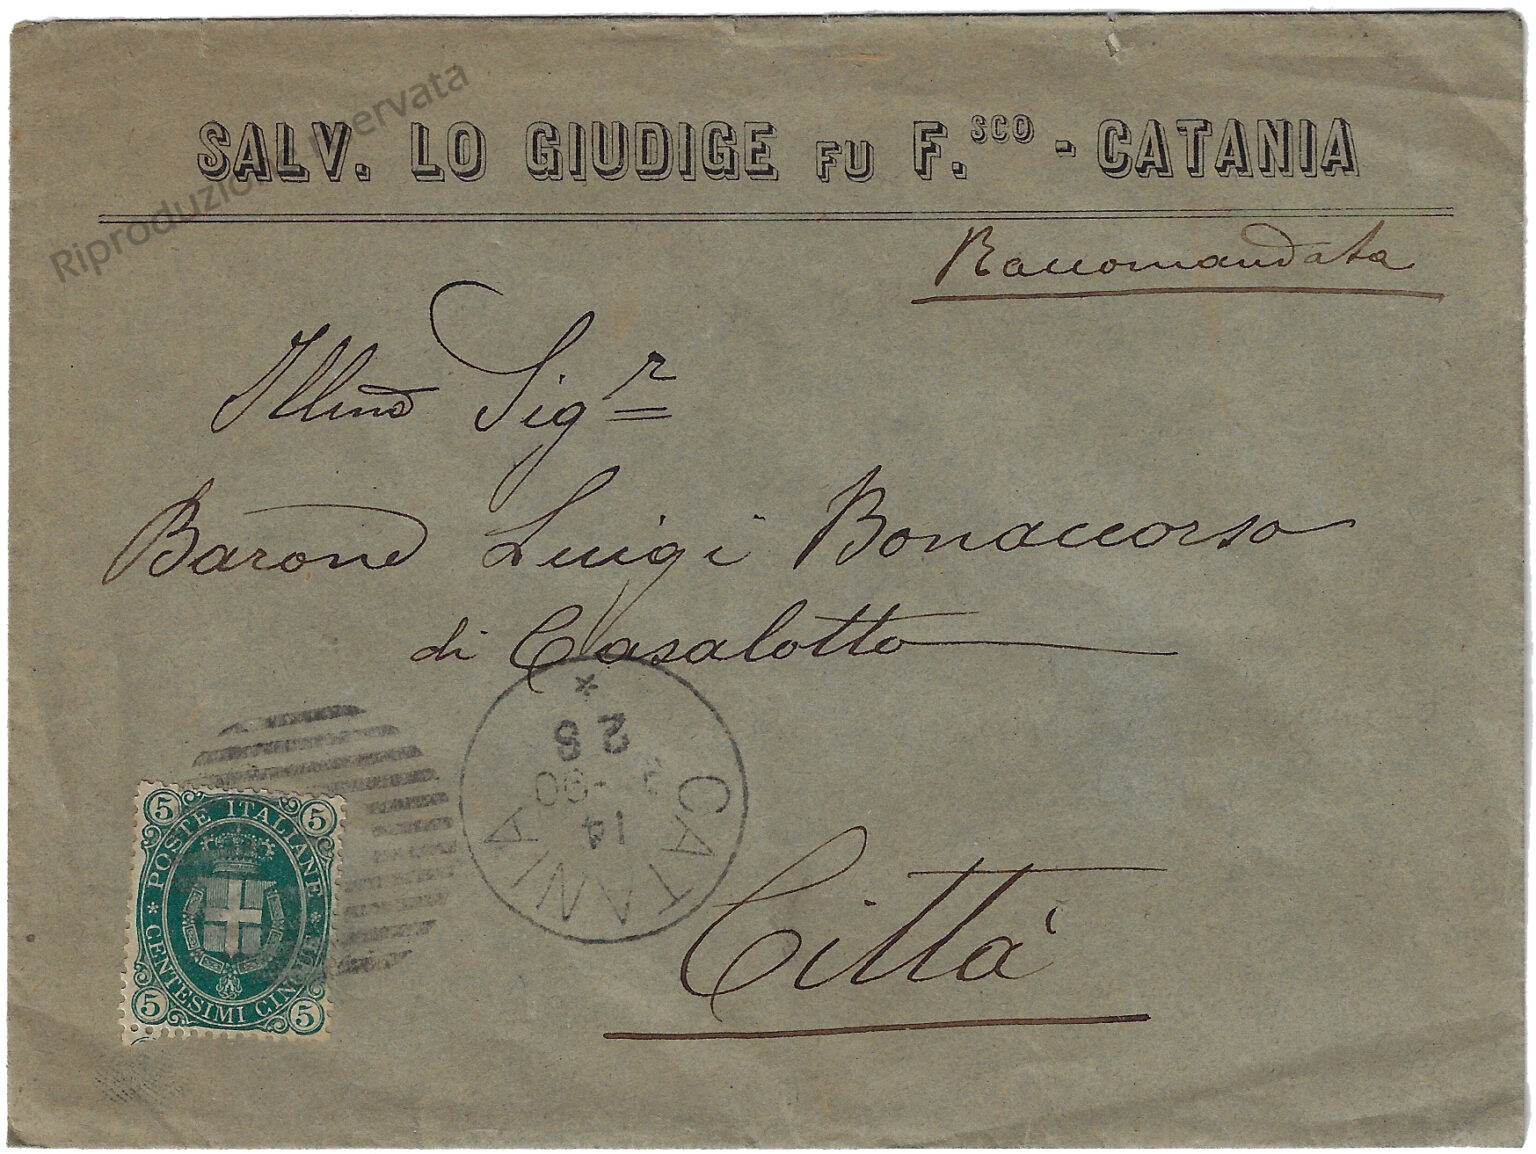 Riproduzione riservata
SALV. LO GIUDICE FU F.SCO - CATANIA
Raccomandata
Illmo Sigr
Barone Luigi Bonaccorso
di Casalotto
Città
CATANIA
14
-90
28
5 5
POSTE ITALIANE
CENTESIMI CINQUE
5 5